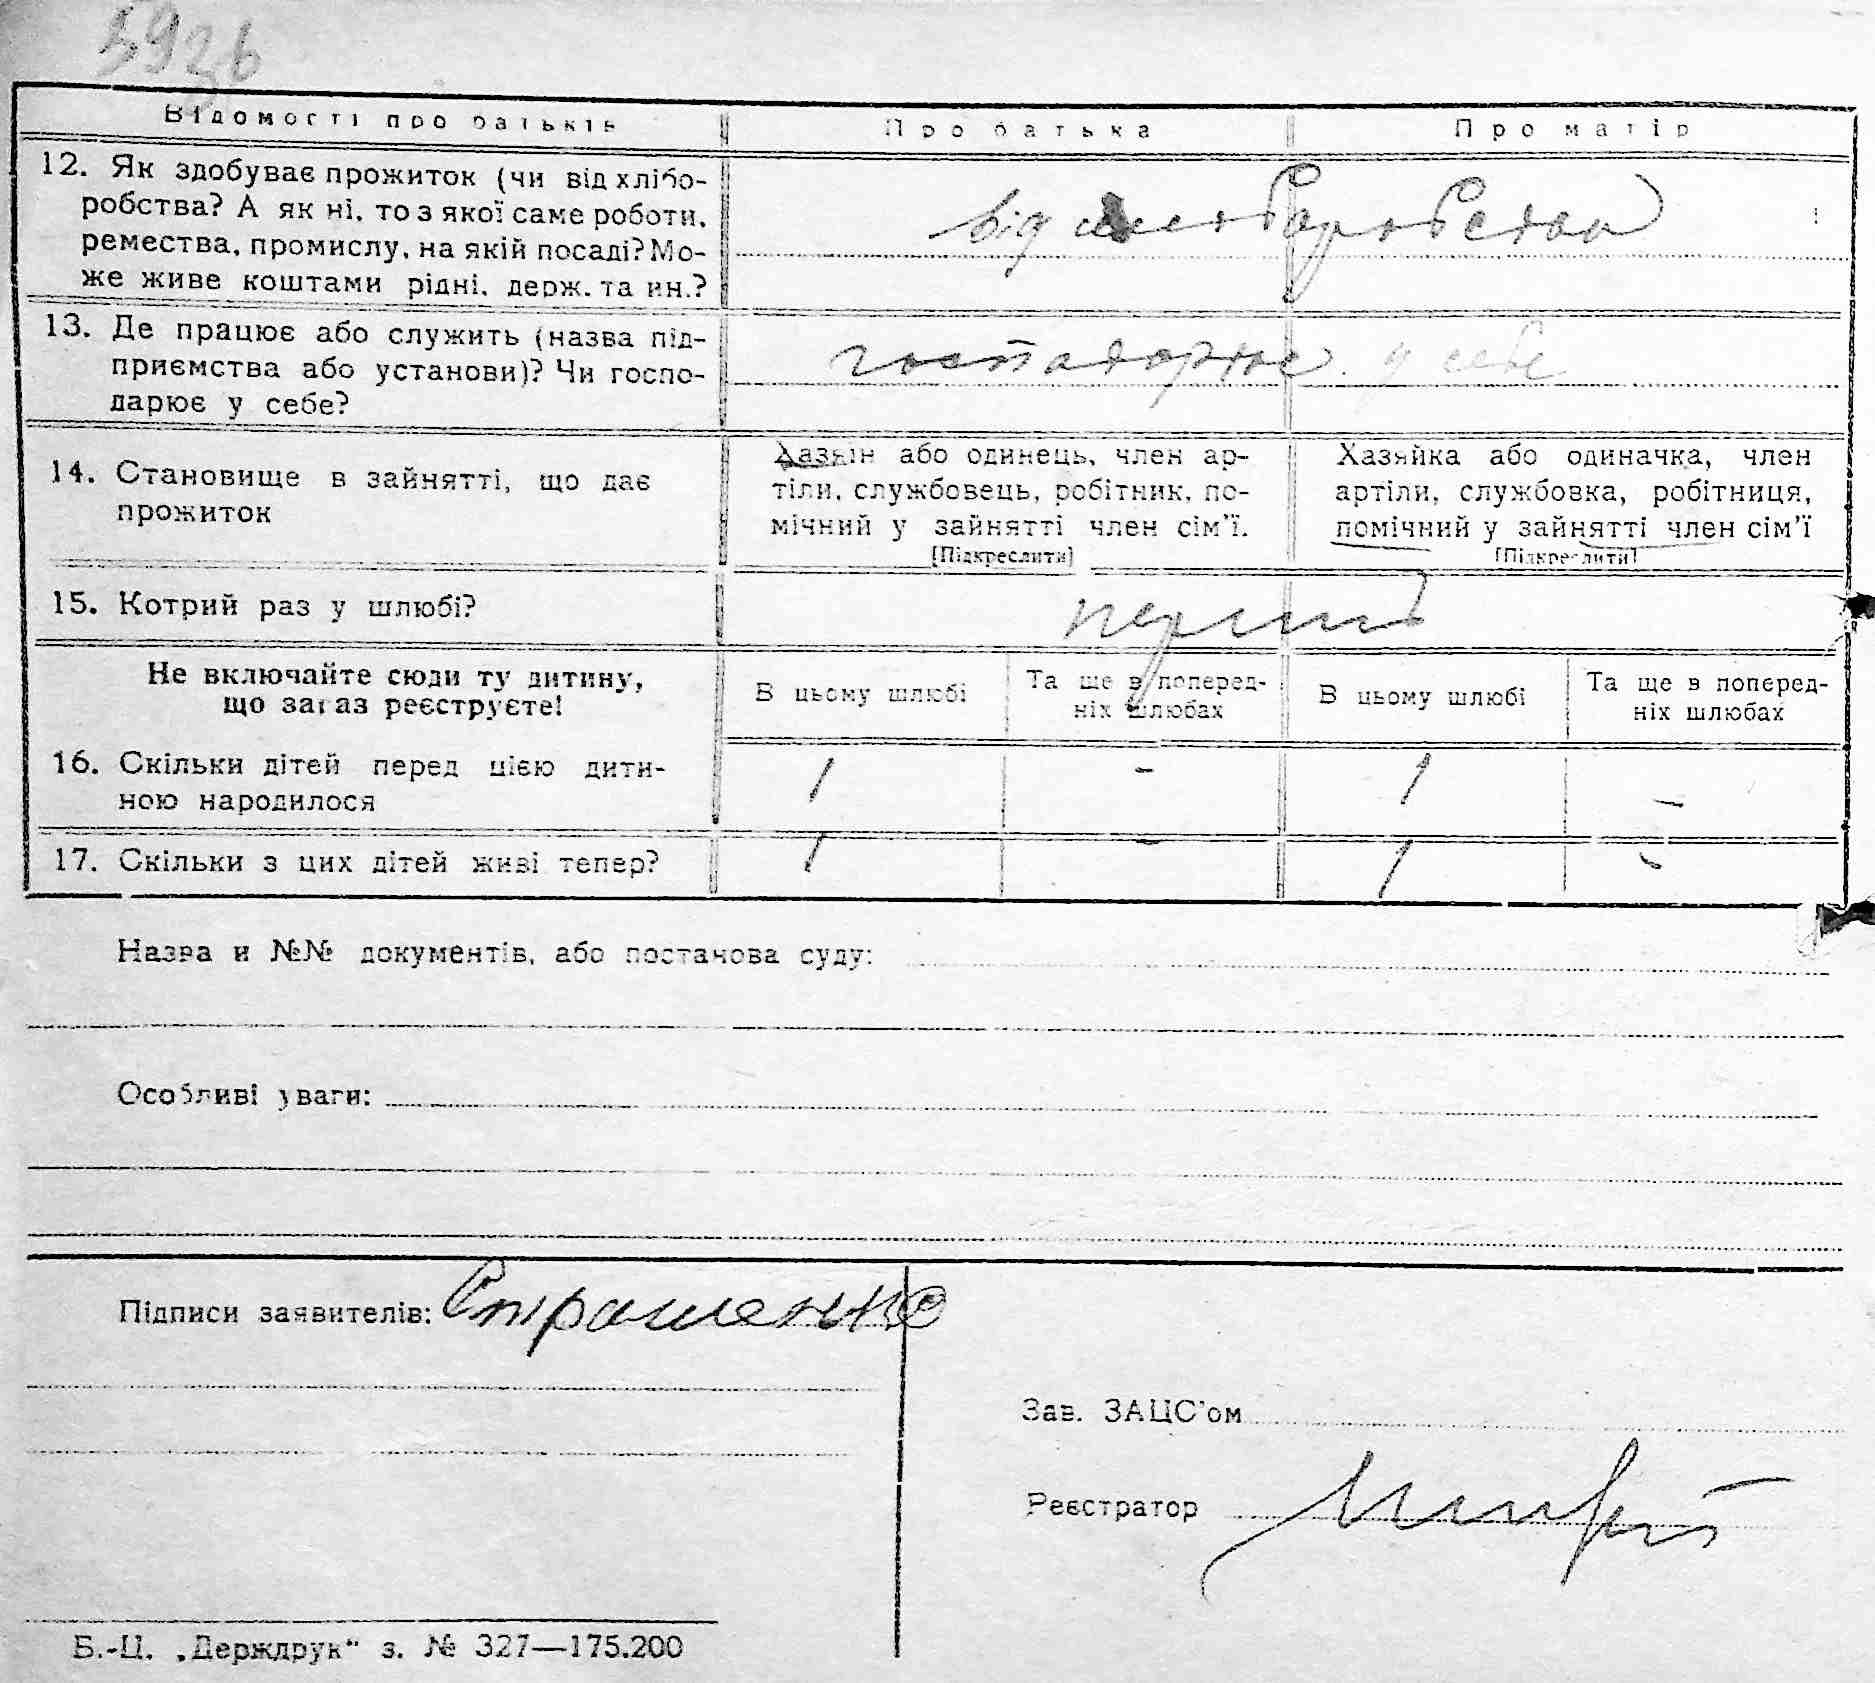 Відомості про батьків Про батька Про матір
12. Як здобуває прожиток (чи від хлібо-
робства? А як ні, то з якої саме роботи,
ремества, промислу, на якій посаді? Мо-
же живе коштами рідні, держ. та ин.?
від хліборобства
13. Де працює або служить (назва під-
приємства або установи)? Чи госпо-
дарює у себе?
господарює у себе
14. Становище в зайнятті, що дає
прожиток
Хазяїн або одинець, член ар-
тіли, службовець, робітник, по-
мічний у зайнятті член сім'ї.
[Підкреслити]
Хазяйка або одиначка, член
артіли, службовка, робітниця,
помічний у зайнятті член сім'ї
[Підкреслити]
15. Котрий раз у шлюбі? перший
Не включайте сюди ту дитину,
що зараз реєструєте!
В цьому шлюбі
Та ще в поперед-
ніх шлюбах
В цьому шлюбі
Та ще в поперед-
ніх шлюбах
16. Скільки дітей перед цією дити-
ною народилося
1 - 1 -
17. Скільки з цих дітей живі тепер? 1 - 1 -
Назва и №№ документів, або постанова суду:
Особливі уваги:
Підписи заявителів: Страшенко
Зав. ЗАЦС'ом
Реєстратор
Б.-Ц. „Держдрук“ з. № 327—175.200